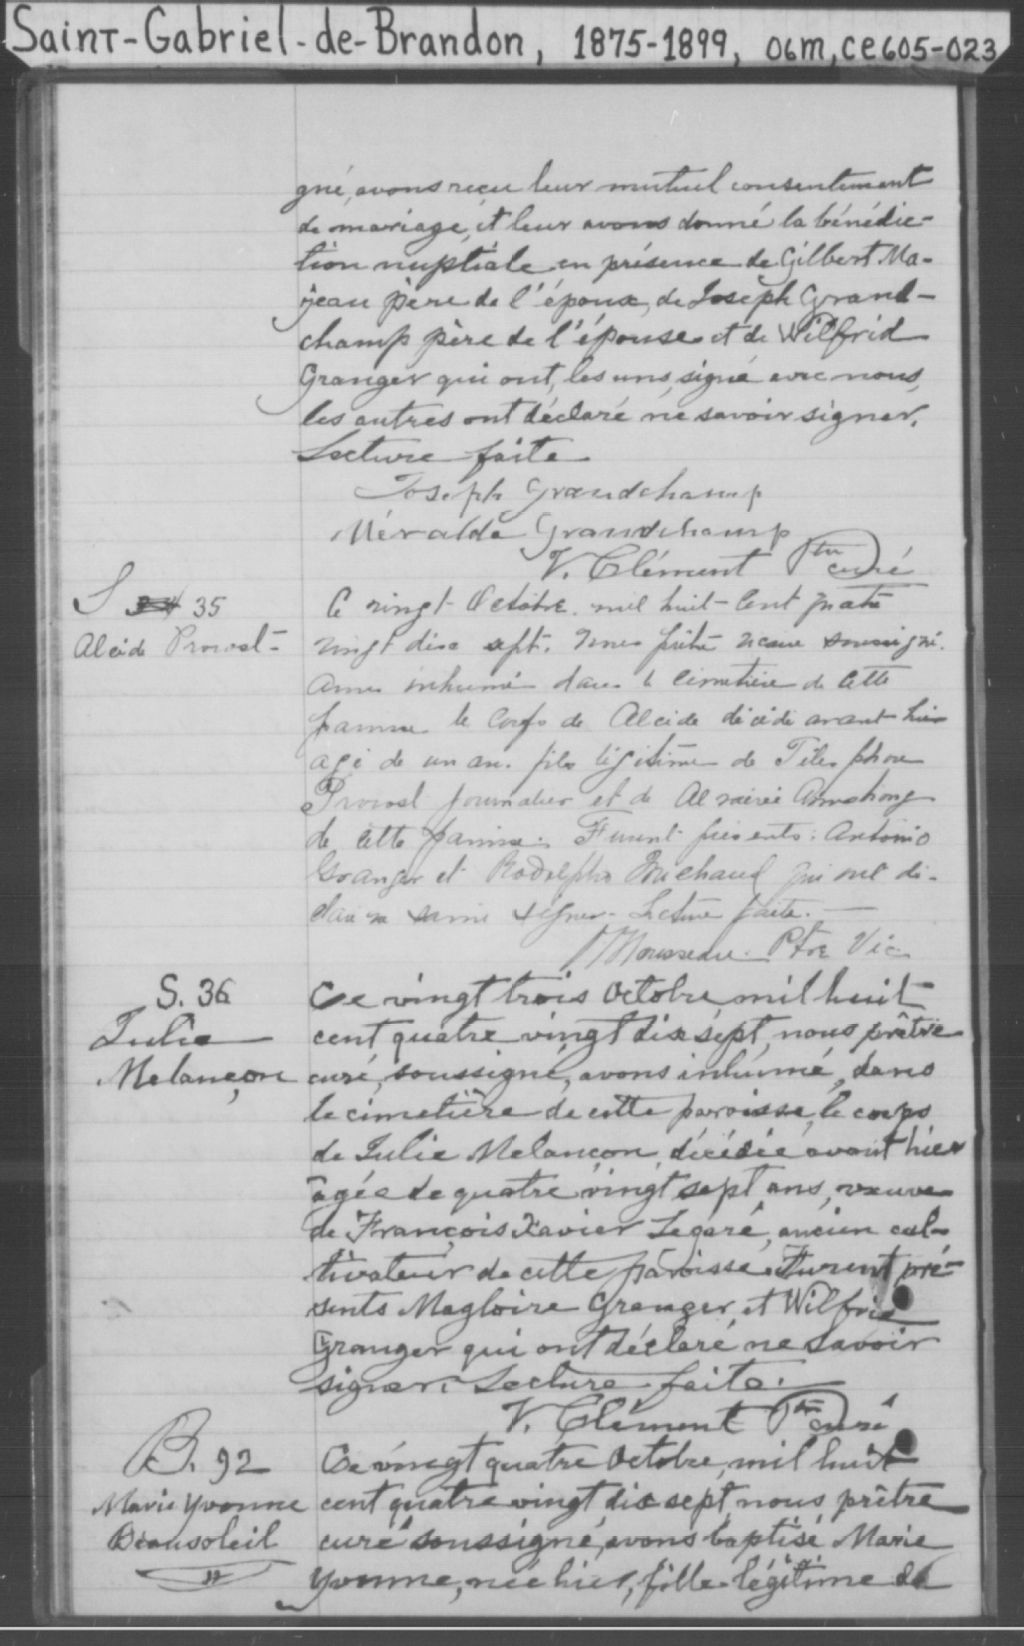 Saint-Gabriel-de-Brandon, 1875-1899, 06m, ce605-023
gné, avons reçu leur mutuel consentement
de mariage, et leur avons donné la bénédic-
tion nuptiale en présence de Gilbert Ma-
jeau père de l'époux, de Joseph Grand-
champ père de l'épouse et de Wilfrid
Granger qui ont, les uns, signé avec nous,
les autres ont déclaré ne savoir signer.
Lecture faite
Joseph Grandchamp
Méralda Grandchamp
V. Clément Ptre curé
S 35
Alcide Provost
Ce vingt Octobre mil huit-cent quatre
vingt dix sept. nous prêtre vicaire soussigné.
avons inhumé dans le cimetière de cette
paroisse le corps de Alcide décédé avant hier
agé de un an. fils légitime de Télesphore
Provost journalier et de Armstrong
de cette paroisse. Furent présents: Antonio
Granger et Rodolphe qui ont dé-
claré ne savoir signer. Lecture faite.
Mousseau Ptre Vic
S. 36
Julie
Melançon
Ce vingt trois Octobre mil huit
cent quatre vingt dix sept, nous prêtre
curé, soussigné, avons inhumé, dans
le cimetière de cette paroisse, le corps
de Julie Melançon, décédée avant hier
agée de quatre vingt sept ans, veuve
de François Xavier Legaré, ancien cul-
tivateur de cette paroisse. Furent pré-
sents Magloire Granger et Wilfrid
Granger qui ont déclaré ne savoir
signer. Lecture faite.
V. Clément Ptre curé
B. 92
Marie Yvonne
Beausoleil
Ce vingt quatre Octobre, mil huit
cent quatre vingt dix sept nous prêtre
curé soussigné, avons baptisé Marie
Yvonne, née hier, fille légitime de